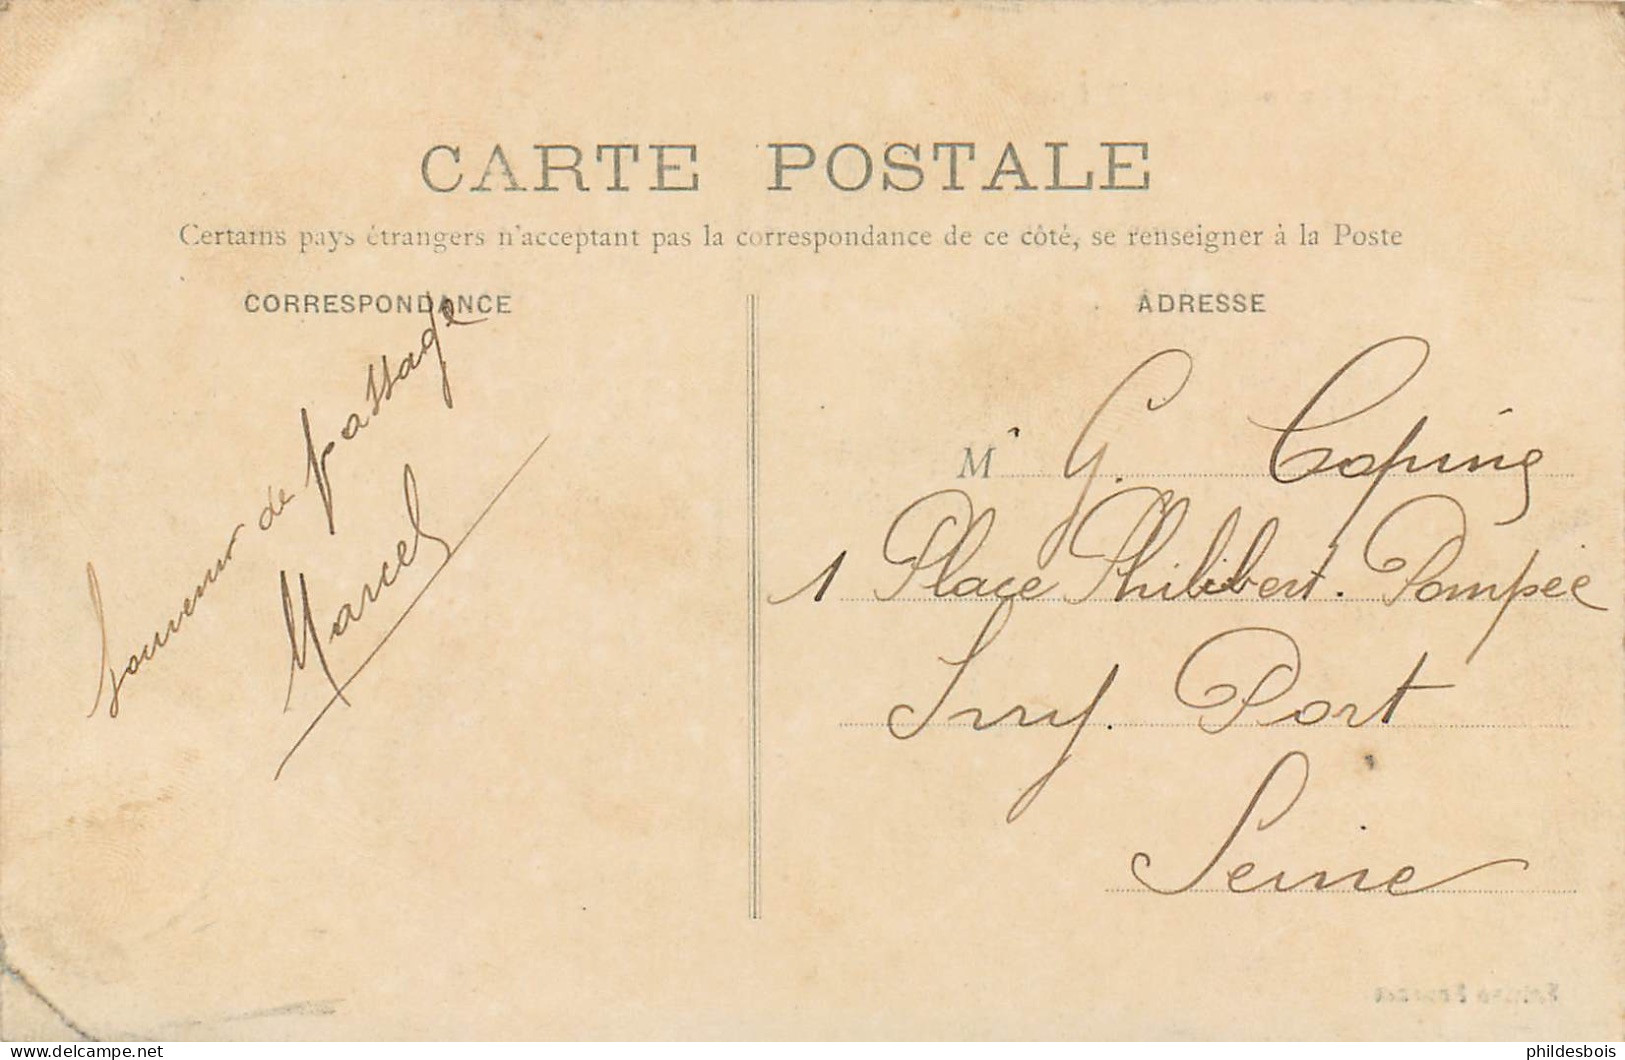 CARTE POSTALE
Certains pays étrangers n'acceptant pas la correspondance de ce côté, se renseigner à la Poste
CORRESPONDANCE
Souvenir de passage
Marcel
ADRESSE
Mr G.
1 Place Philibert. Pompée
Ivry. Port
Seine
phildesbois